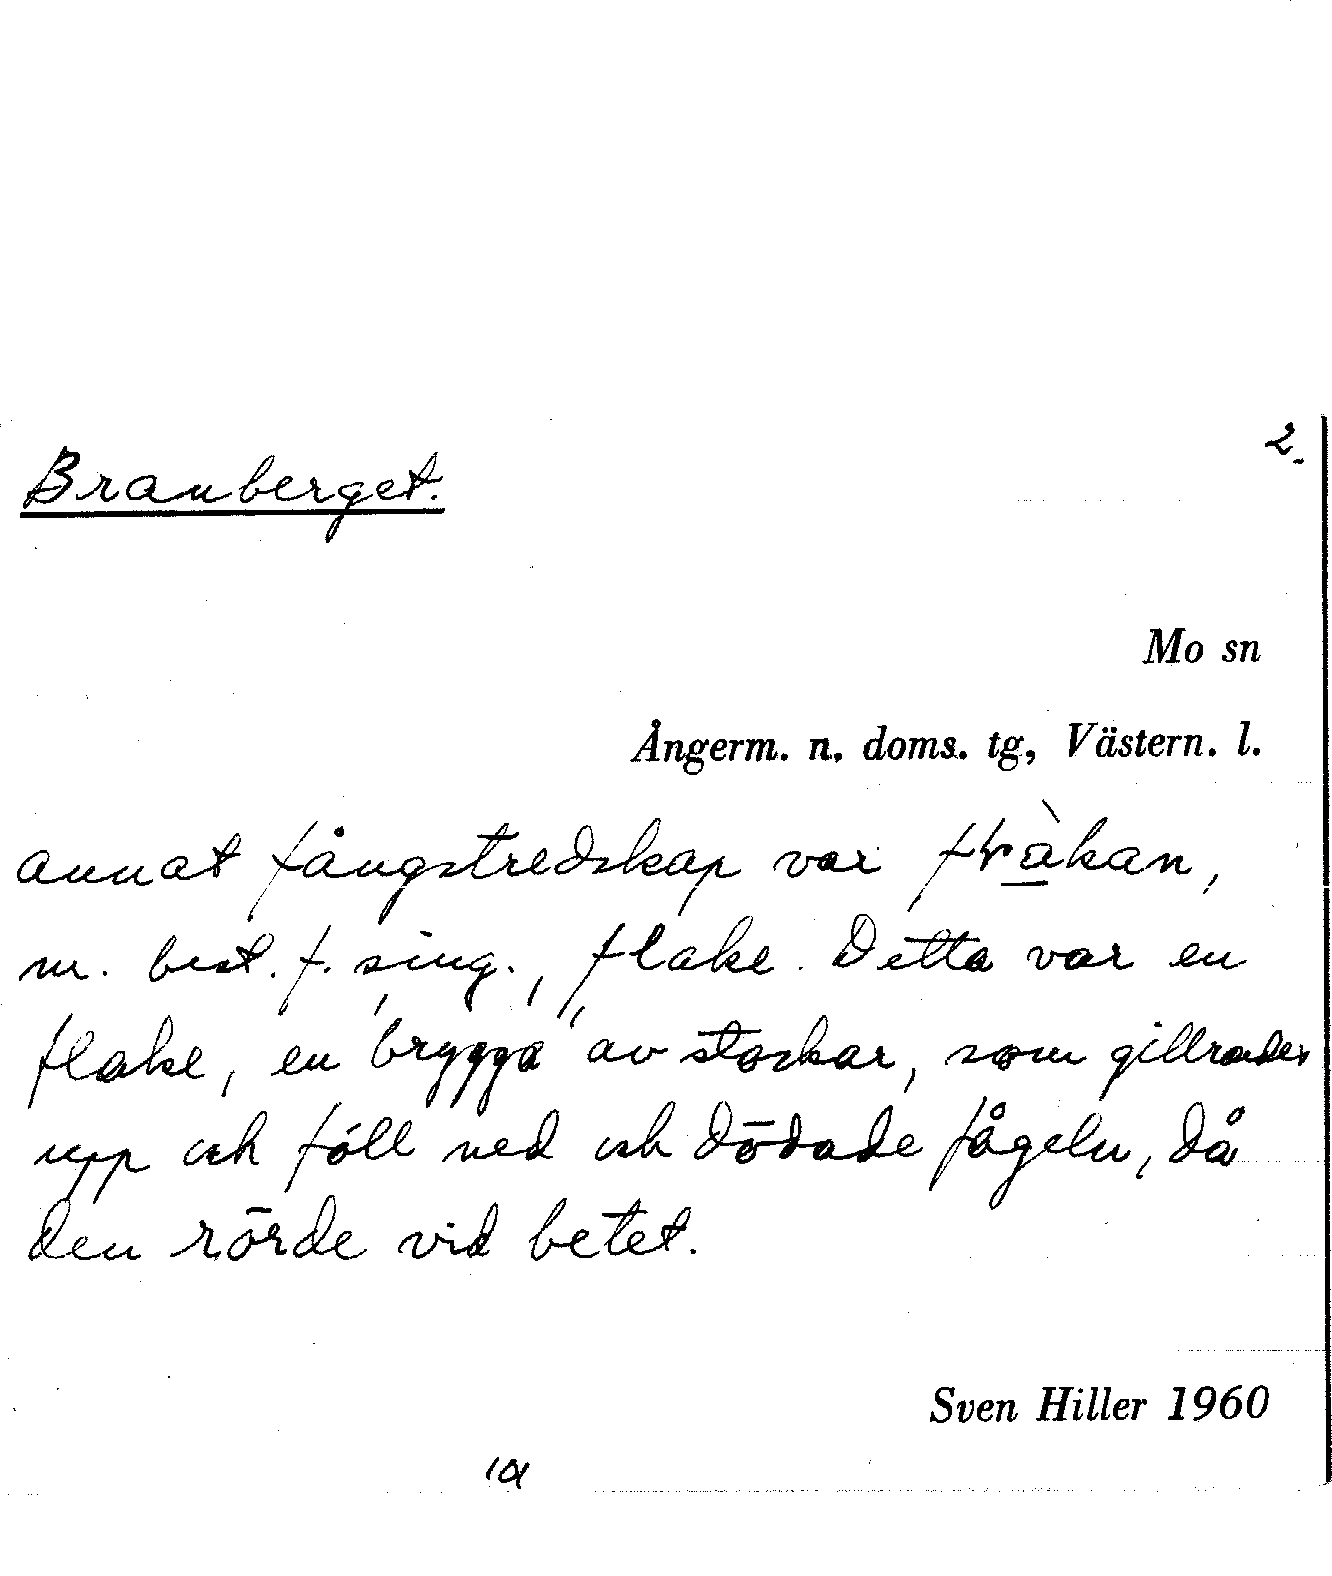 2.
Branberget.
Mo sn
Ångerm. n. doms. tg, Västern. l.
annat fångstredskap var
m. best. f. sing., flake. Detta var en
flake, en "brygga" av stockar, som gillrades
upp och föll ned och dödade fågeln, då
den rörde vid betet.
Sven Hiller 1960